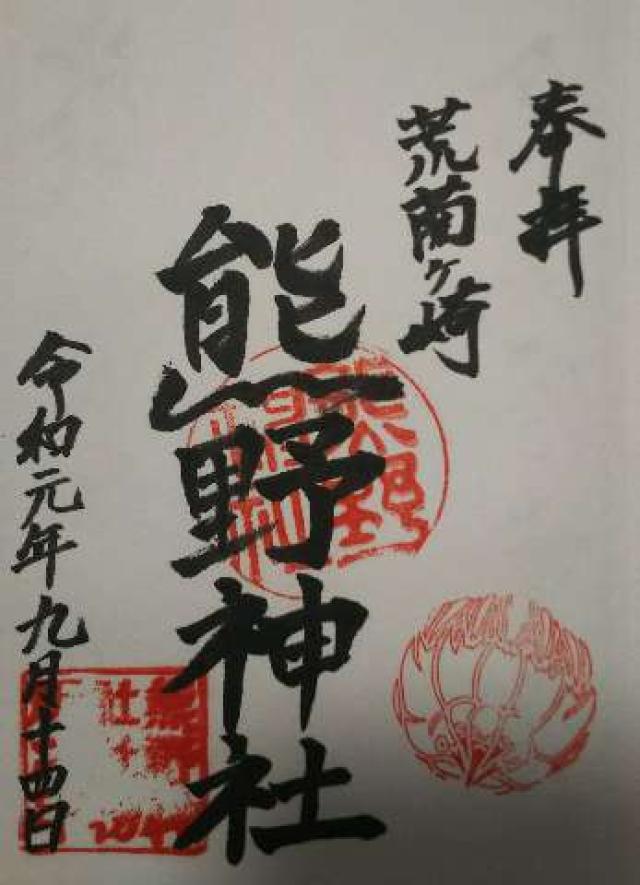 奉拝
荒藺ヶ崎
熊野神社
令和元年九月十四日